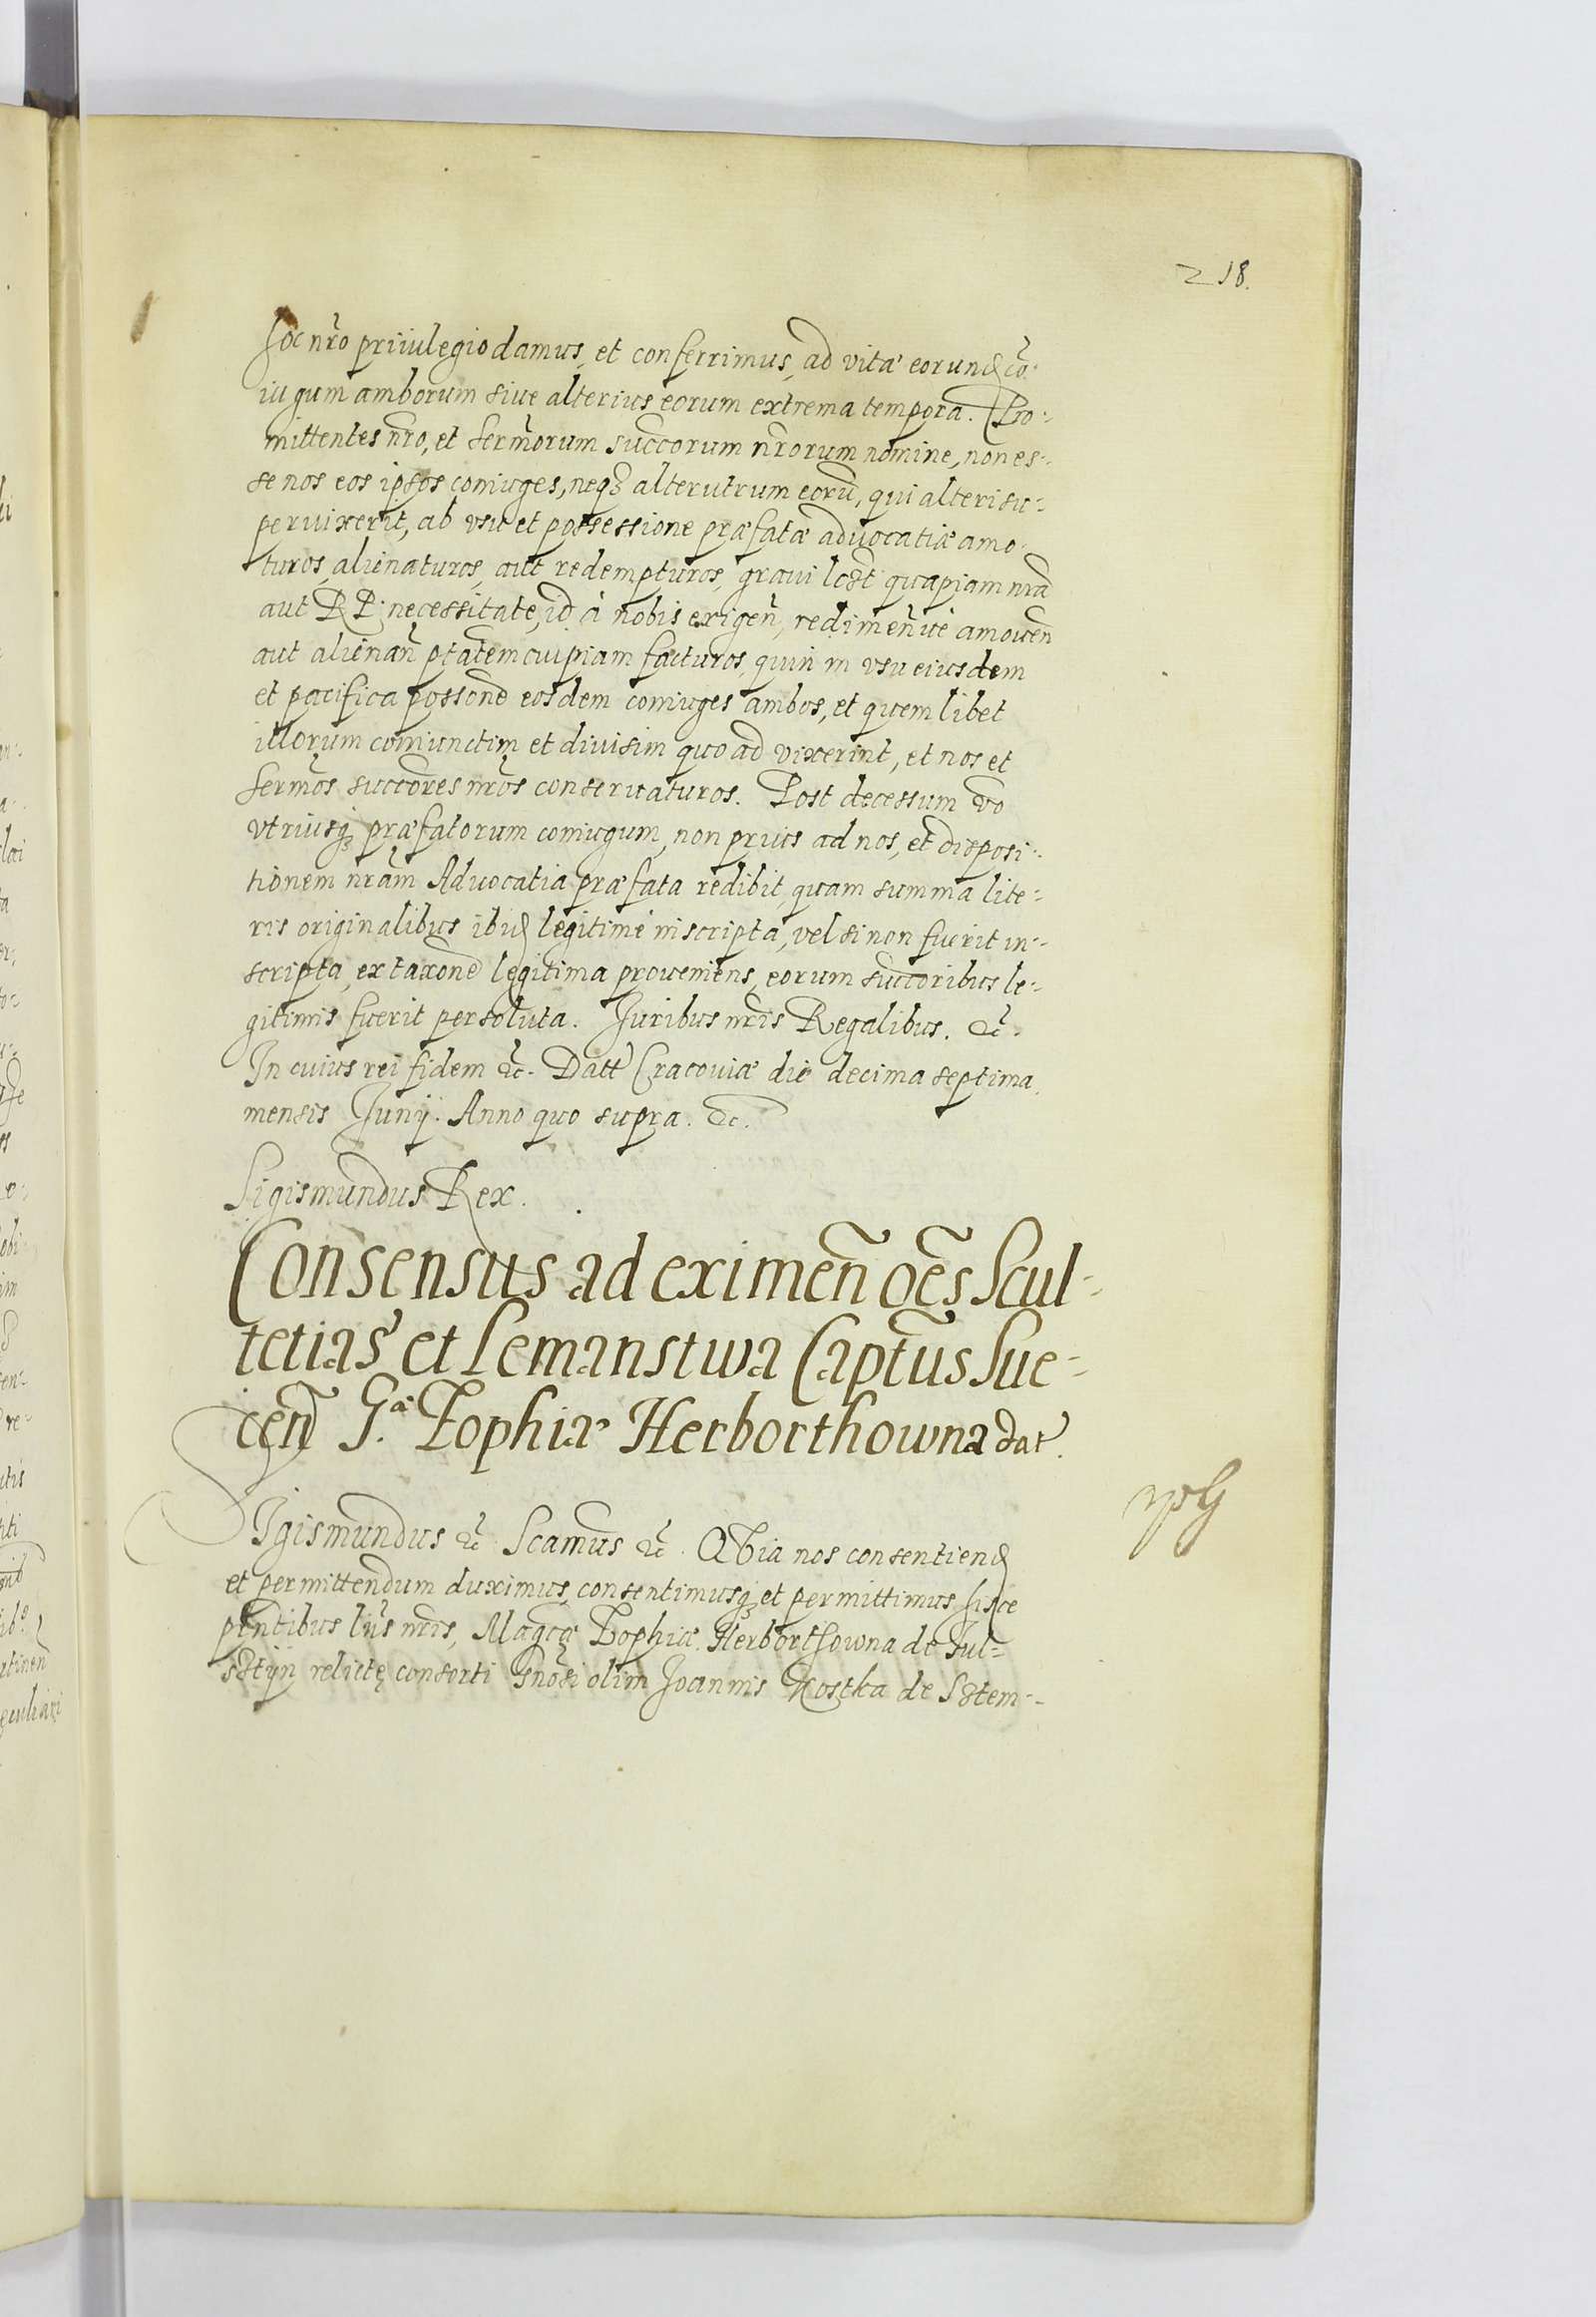 218.
hoc nr̃o priiulegio damus, et conferrimus, ad vitã eorund cõ:
iugum amborum siue alterius eorum extrema tempora. Pro:
mittentes nr̃o, et Serm̃orum succ̃orum nr̃orum nomine, non es:
se nos eos ipsos coniuges, neqꝫ alterutrum eorũ, qui alteri su:
peruixerit, ab vsu et possessione præfatæ aduocatiæ amo:
turos, alienaturos, aut redempturos, graui licet quapiam nr̃a
aut R P: necessitate, id à nobis exigen̄, redimen̄ue amouen̄
aut alienan̄ ptãtem cuipiam facturos, quin in vsu eiusdem
et pacifica possoñe eosdem coniuges ambos, et quem libet
illorum coniunctim et diuisim quo ad vixerint, et nos et
Serm̃os succõres nr̃os conseruaturos. Post decessum vo
vtriusqꝫ præfatorum coniugum, non prius ad nos, et disposi:
tionem nr̃am Aduocatia præfata redibit, quam summa lite:
ris originalibus ibid legitimé inscripta, vel si non fuerit in:
scripta, ex taxoñe legitima proueniens, eorum succõribus le:
gitimis fuerit persoluta. Juribus nr̃is Regalibus. &c̃.
In cuius rei fidem &c̃. Datt Cracouiæ die decima septima
mensis Junij. Anno quo supra. &c.
Sigismundus Rex.
Consensus ad eximen̄ oẽs Scul-
tetias et Lemanstwa Captũs Sue-
cen̄ G.ᵃ Zophiæ Herborthowna dat.
Sigismundus &c̃ Scamũs &c̃. Quia nos consentiend
et permittendum duximus, consentimusqꝫ et permittimus hisce
pñtibus lr̃is nr̃is, Magcæ Zophiæ Herborthowna de Ful-
sstijn relictę consorti gnõsi olim Joannis Kostka de Sstem: